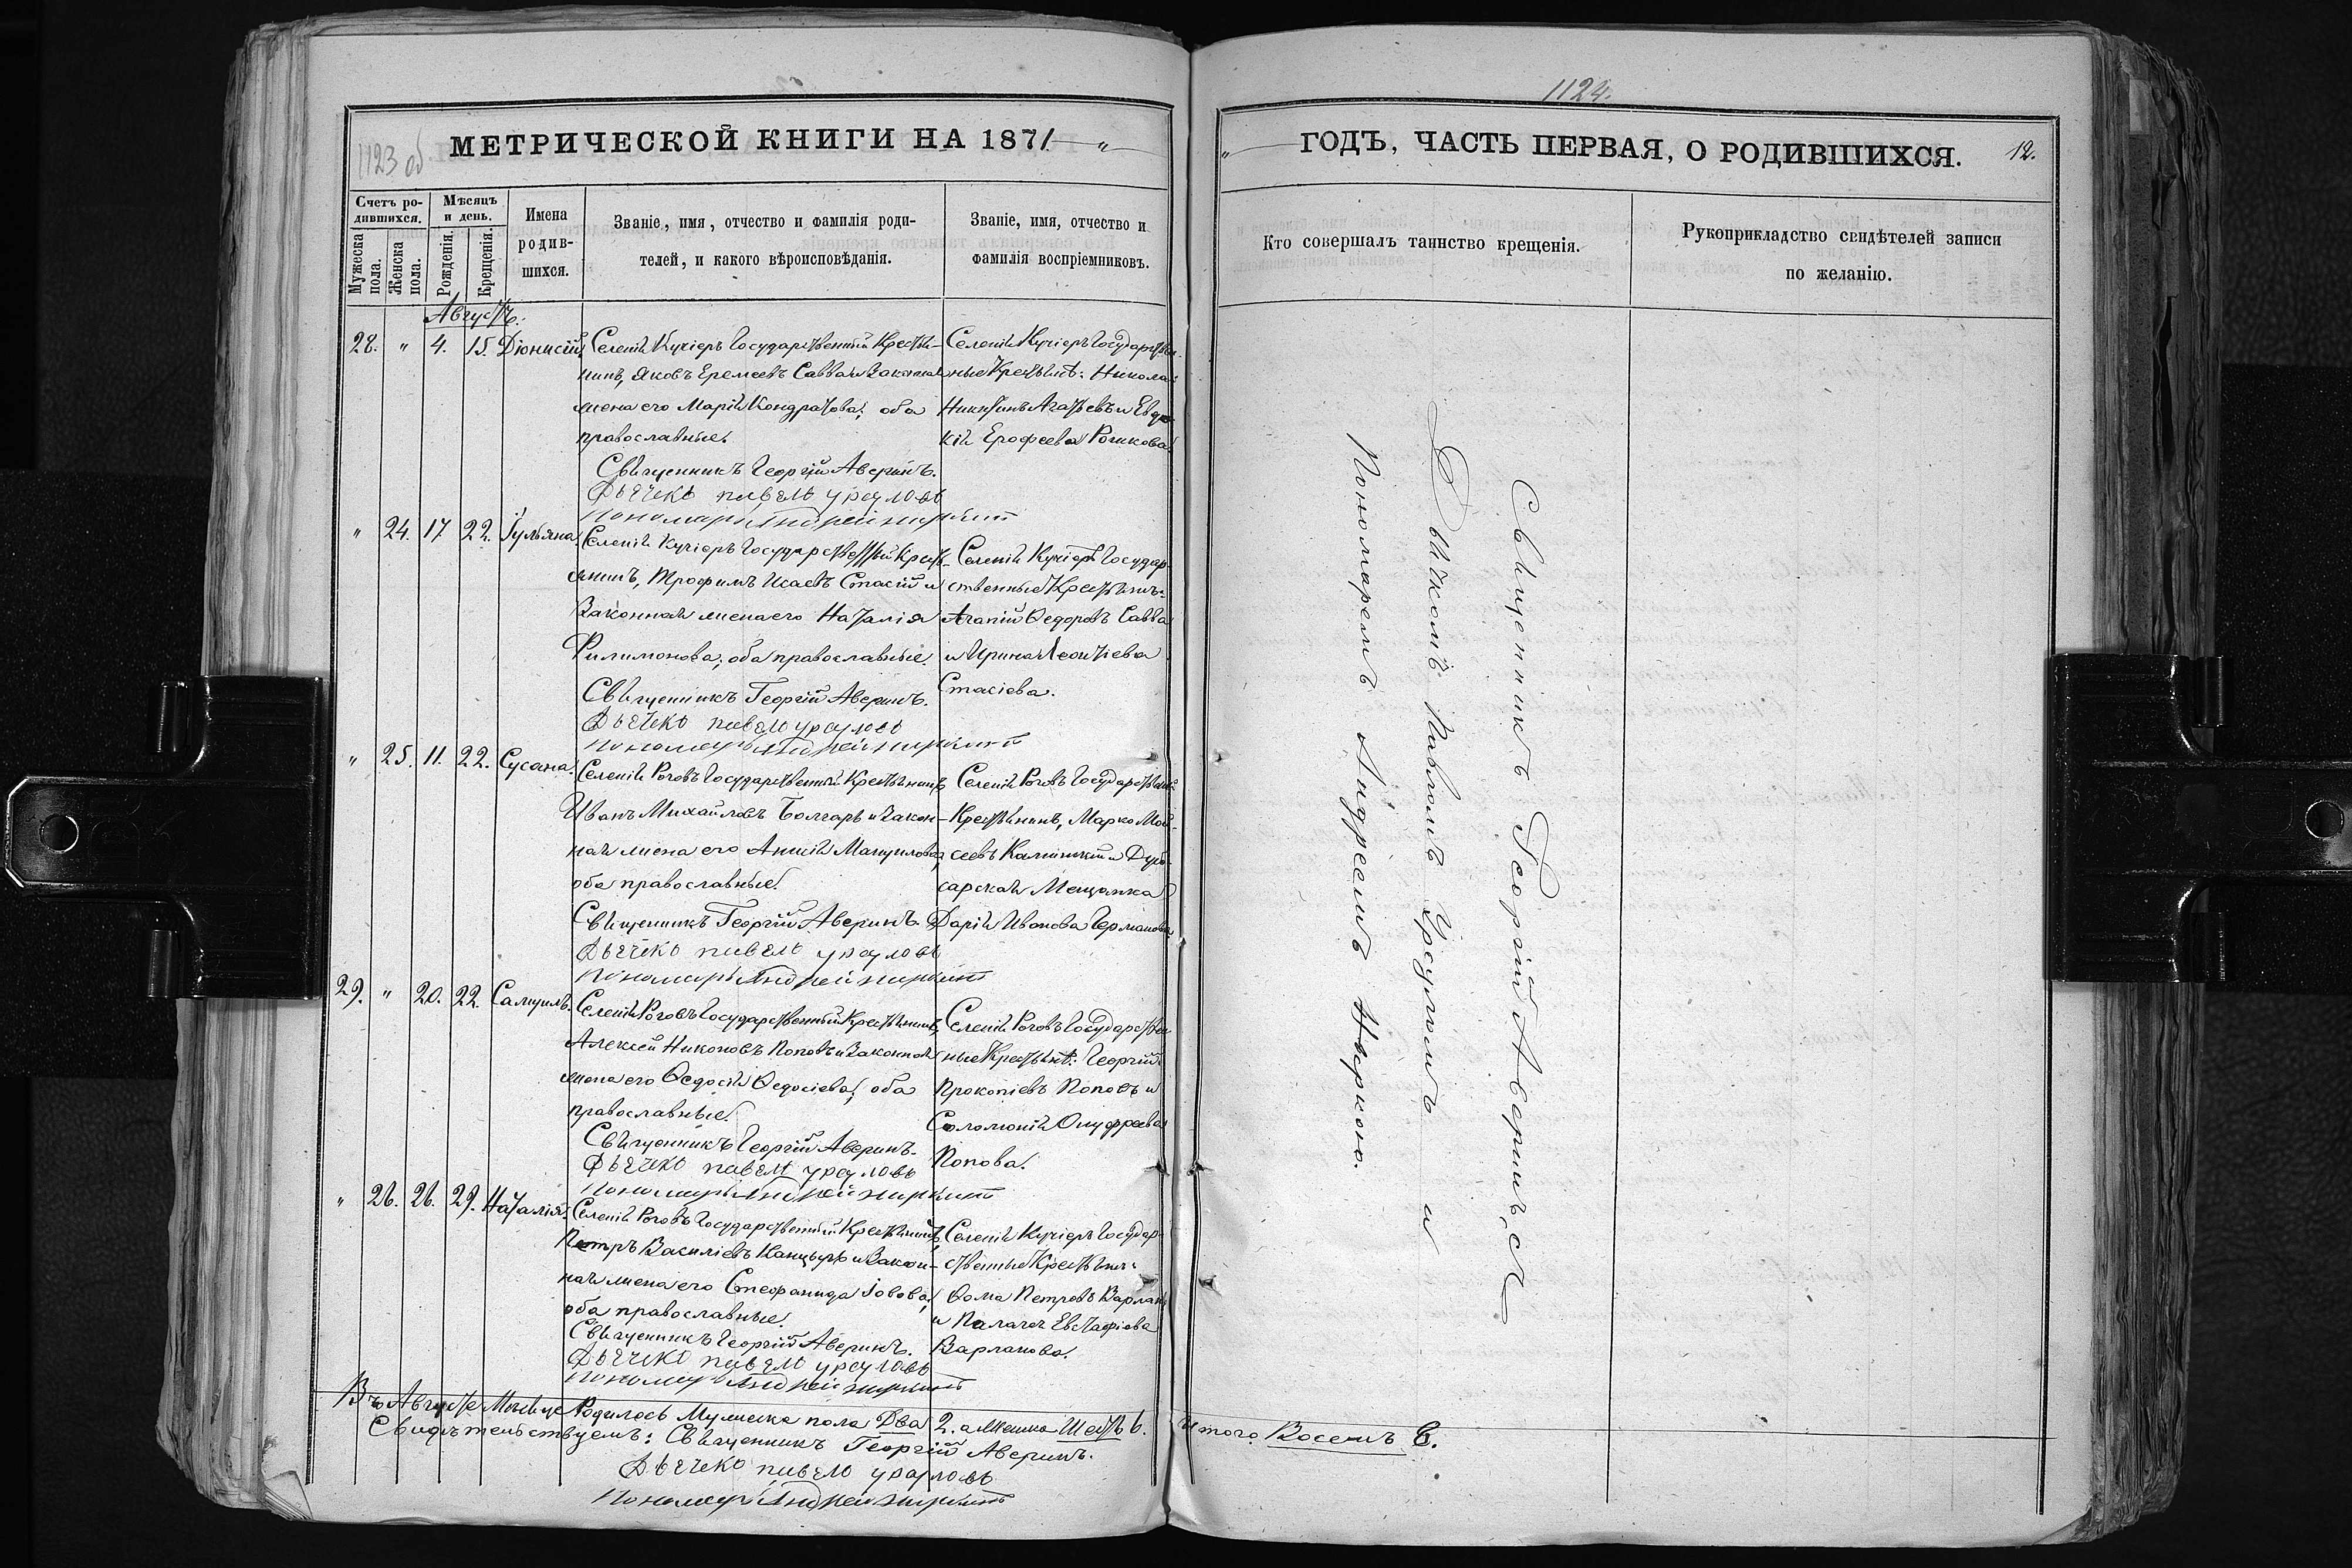 1123 об
МЕТРИЧЕСКОЙ КНИГИ НА 1871 "
Счетъ ро-
дившихся.
Мѣсяцъ
и день.
Имена
родив-
шихся.
Званіе, имя, отчество и фамилія роди-
телей, и какого вѣроисповѣданія.
Званіе, имя, отчество и
фамилія воспріемниковъ.
Мужеска
пола.
Женска
пола.
Рожденія.
Крещенія.
Августъ.
28. " 4. 15. Діонисій
Селенія Кучіеръ Государственный Крестья-
нинъ, Яковъ Еремеевъ Савва и Законная
жена его Марія Кондратова, оба
православные.
Священникъ Георгій Аверинъ.
Дьячекъ павелъ урсуловъ
Пономарь Андрей
Селенія Кучіеръ Государствен-
ные Крестьяне: Николай
Никитинъ Агатьевъ и Евдо-
кія Ерофеева Рошкова.
" 24. 17 22. Іульяна.
Селенія Кучіеръ Государственный Кресть-
янинъ, Трофимъ Исаевъ Стасій и
Законная жена его Наталія
Филимонова, оба православные.
Священникъ Георгій Аверинъ.
Дьячекъ павелъ урсуловъ
Пономарь Андрей
Селенія Кучіеръ Государ-
ственные Крестьяне:
Агапій Ѳедоровъ Савва
и Ирина Леонтіева
Стасіева.
" 25. 11. 22. Сусана.
Селенія Роговъ Государственный Крестьянинъ
Иванъ Михайловъ Болгаръ и Закон-
ная жена его Анисія Мануилова,
оба православные.
Священникъ Георгій Аверинъ.
Дьячекъ павелъ урсуловъ
Пономарь Андрей
Селенія Роговъ Государственный
Крестьянинъ, Марко Мой-
сеевъ Калинскій и Дубо-
сарская Мещанка
Дарія Иванова Германова
29. " 20. 22. Самуилъ.
Селенія Роговъ Государственный Крестьянинъ,
Алексей Никоновъ Поповъ и Законная
жена его Ѳедосія Ѳедосіева, оба
православные.
Священникъ Георгій Аверинъ.
Дьячекъ павелъ урсуловъ
Пономарь Андрей
Селенія Роговъ Государствен-
ные Крестьяне: Георгій
Прокопіевъ Поповъ и
Соломонія Онуфреева
Попова.
" 26. 26. 29. Наталія.
Селенія Роговъ Государственный Крестьянинъ,
Петръ Василіевъ Канцыръ и Закон-
ная жена его Стефанида Іовова,
оба православные.
Священникъ Георгій Аверинъ.
Дьячекъ павелъ урсуловъ
Пономарь Андрей
Селенія Кучіеръ Государ-
ственные Крестьяне:
Ѳома Петровъ Варланъ
и Палагея Евстафіева
Варланова.
Въ Августе Месяце Родилось Мужеска пола Два 2. а Женска Шесть 6.
Свидѣтельствуемъ: Священникъ Георгій Аверинъ.
Дьячекъ павелъ урсуловъ
Пономарь Андрей
1124.
" ГОДЪ, ЧАСТЬ ПЕРВАЯ, О РОДИВШИХСЯ. 12.
Кто совершалъ таинство крещенія.
Рукоприкладство свидѣтелей записи
по желанію.
Священникъ Георгій Аверинъ, съ
Дьячкомъ Павломъ Урсуломъ и
Пономаремъ Андреемъ Няркою.
Итого Восемъ 8.